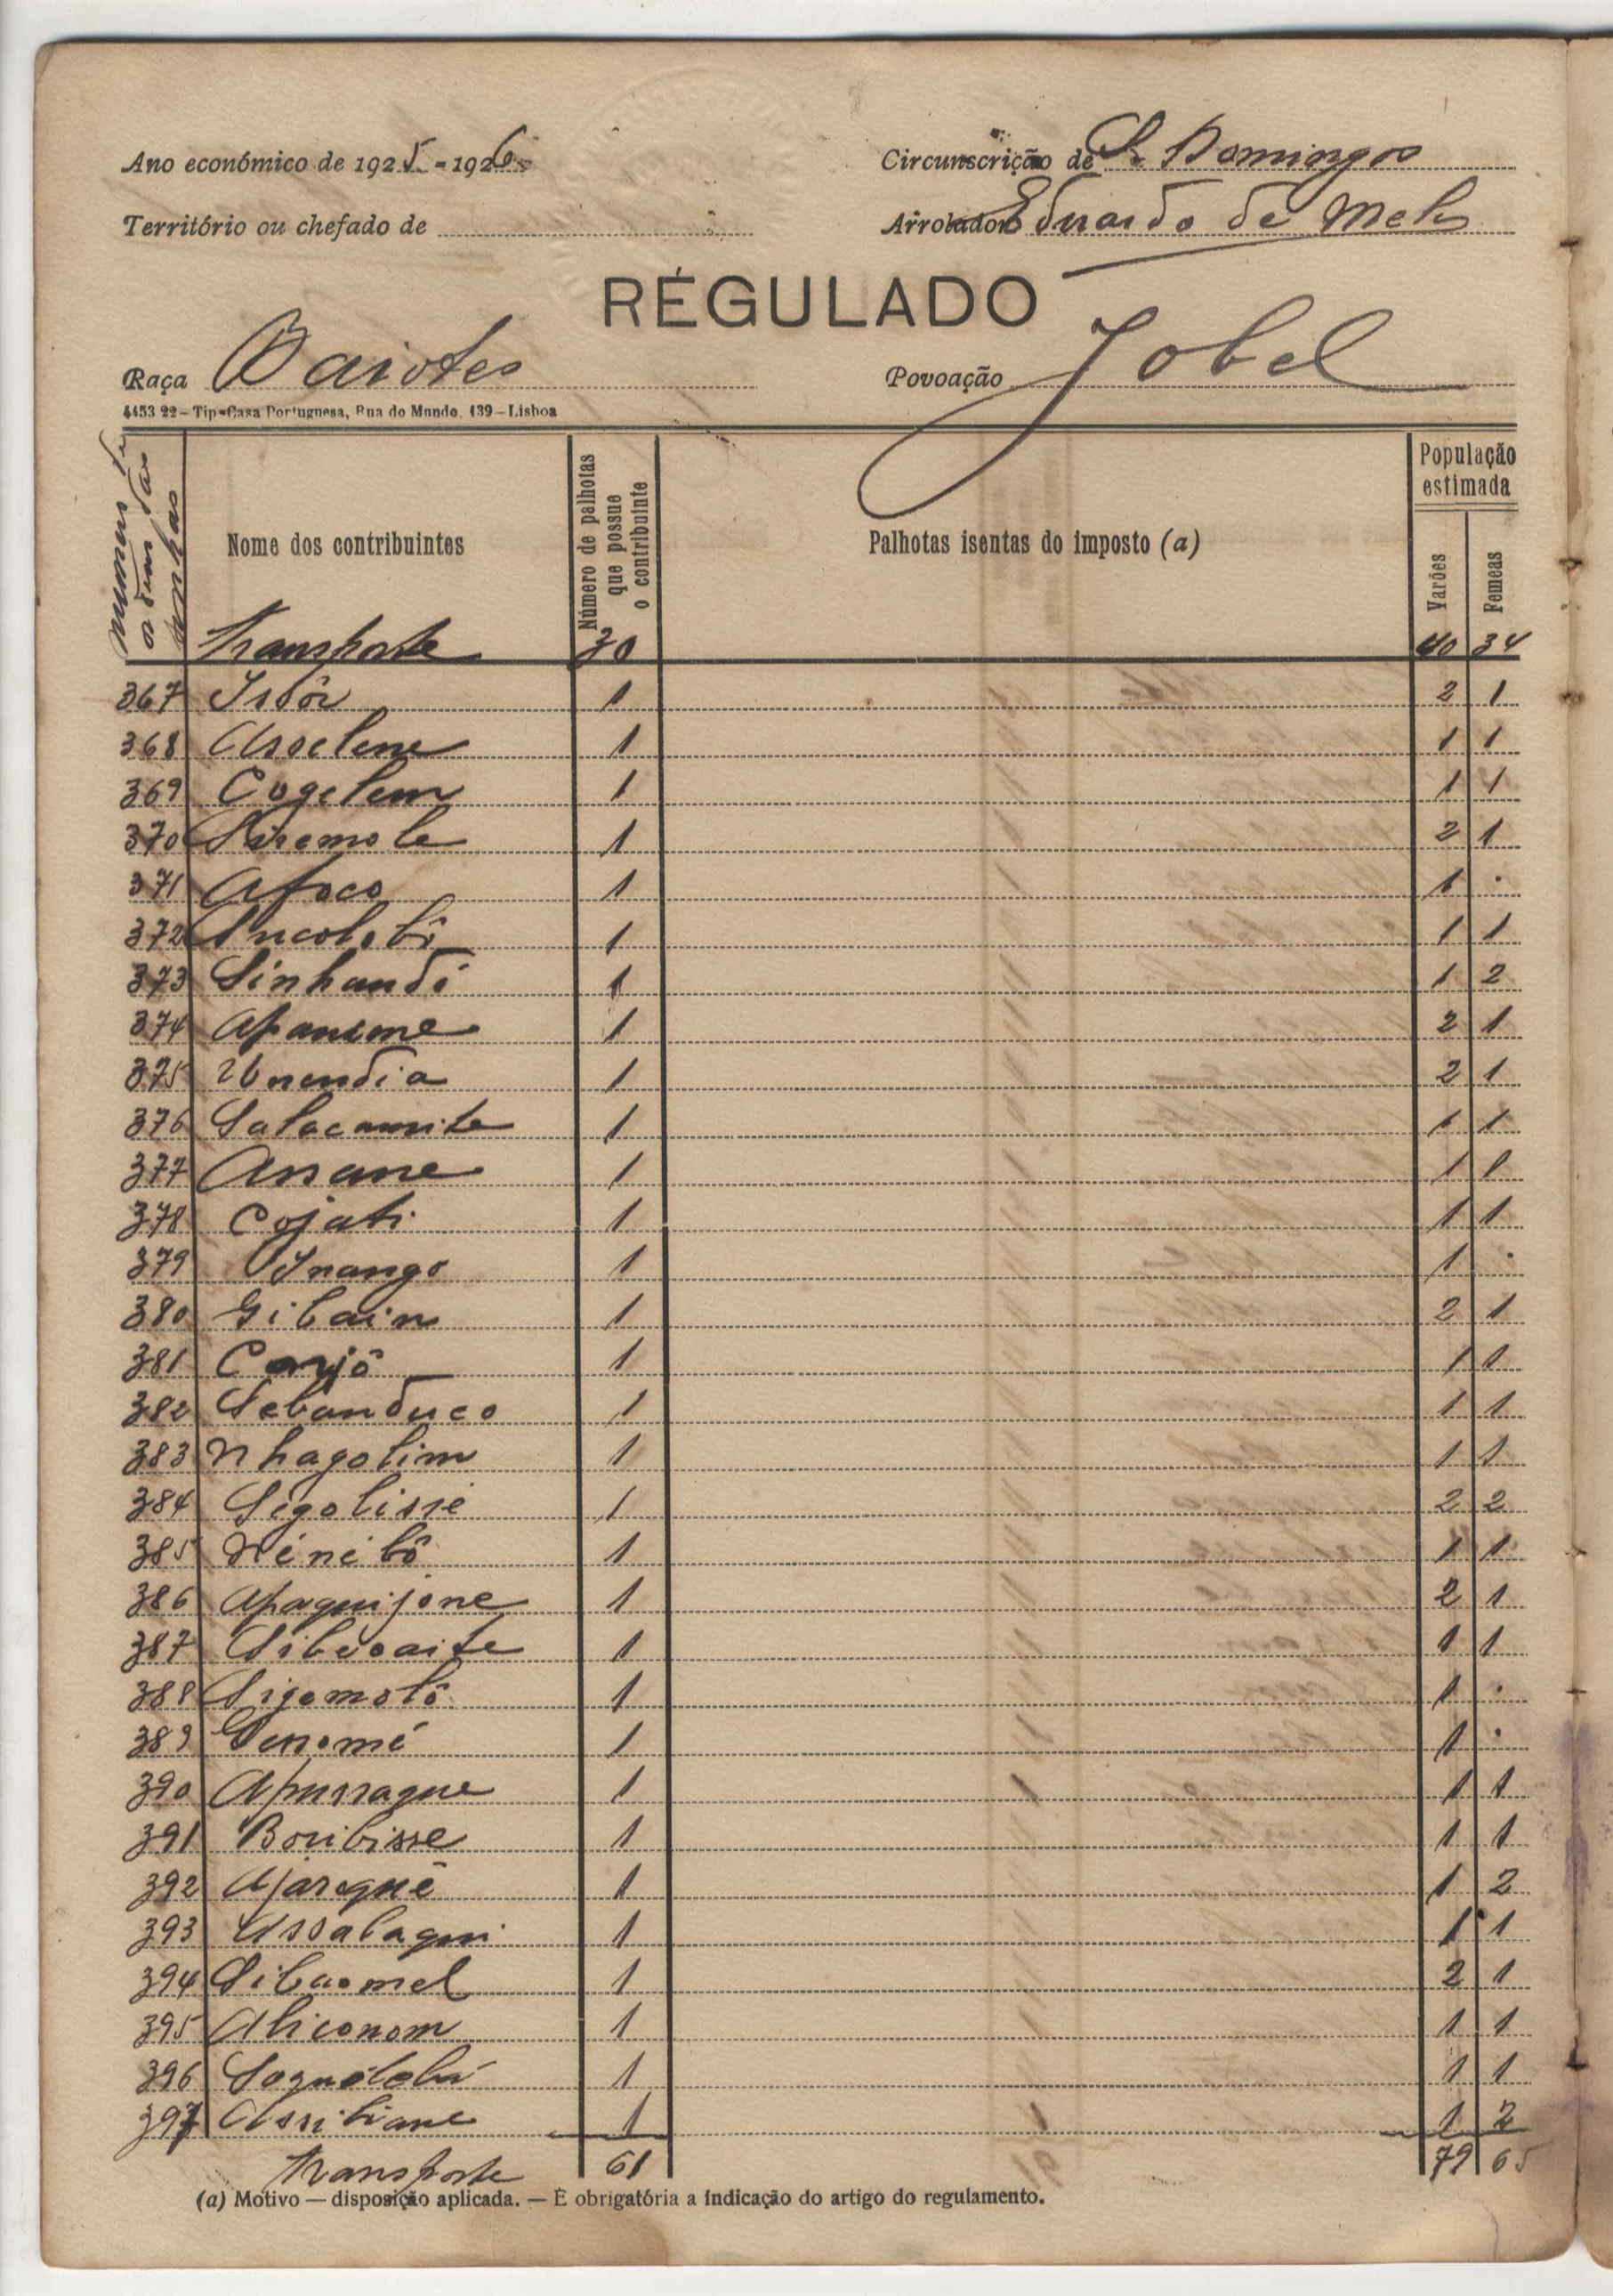 Ano económico de 1925-1926
Circunscrição de S. Domingos
Território ou chefado de
Arrolador Eduardo de Melo
RÉGULADO
Raça Baiotes
Povoação Jobel
4453 22 – Tip. Casa Portuguesa, Rua do Mundo, 139 – Lisboa
Nome dos contribuintes
Número de palhotas que possue o contribuinte
Palhotas isentas do imposto (a)
População estimada
Varões
Femeas
Transporte 30 40 34
367 1 2 1
368 Asselene 1 1 1
369 Cogelem 1 1 1
370 Siremole 1 2 1
371 Afoco 1 1 .
372 1 1 1
373 Sinhandi 1 1 2
374 Apaneme 1 2 1
375 Unendia 1 2 1
376 1 1 1
377 Assane 1 1 1
378 Cojati 1 1 1
379 Inango 1 1 .
380 Gibain 1 2 1
381 1 1 1
382 Sebanduco 1 1 1
383 Nhagolim 1 1 1
384 Segolissé 1 2 2
385 1 1 1
386 Apaquijone 1 2 1
387 1 1 1
388 Sigomolô 1 1 .
389 1 1 .
390 Apussague 1 1 1
391 Boribisse 1 1 1
392 1 1 2
393 Assalaqui 1 1 1
394 Sibaomel 1 2 1
395 Aliconom 1 1 1
396 1 1 1
397 Assiliane 1 1 2
Transporte 61 79 65
(a) Motivo — disposição aplicada. — É obrigatória a indicação do artigo do regulamento.